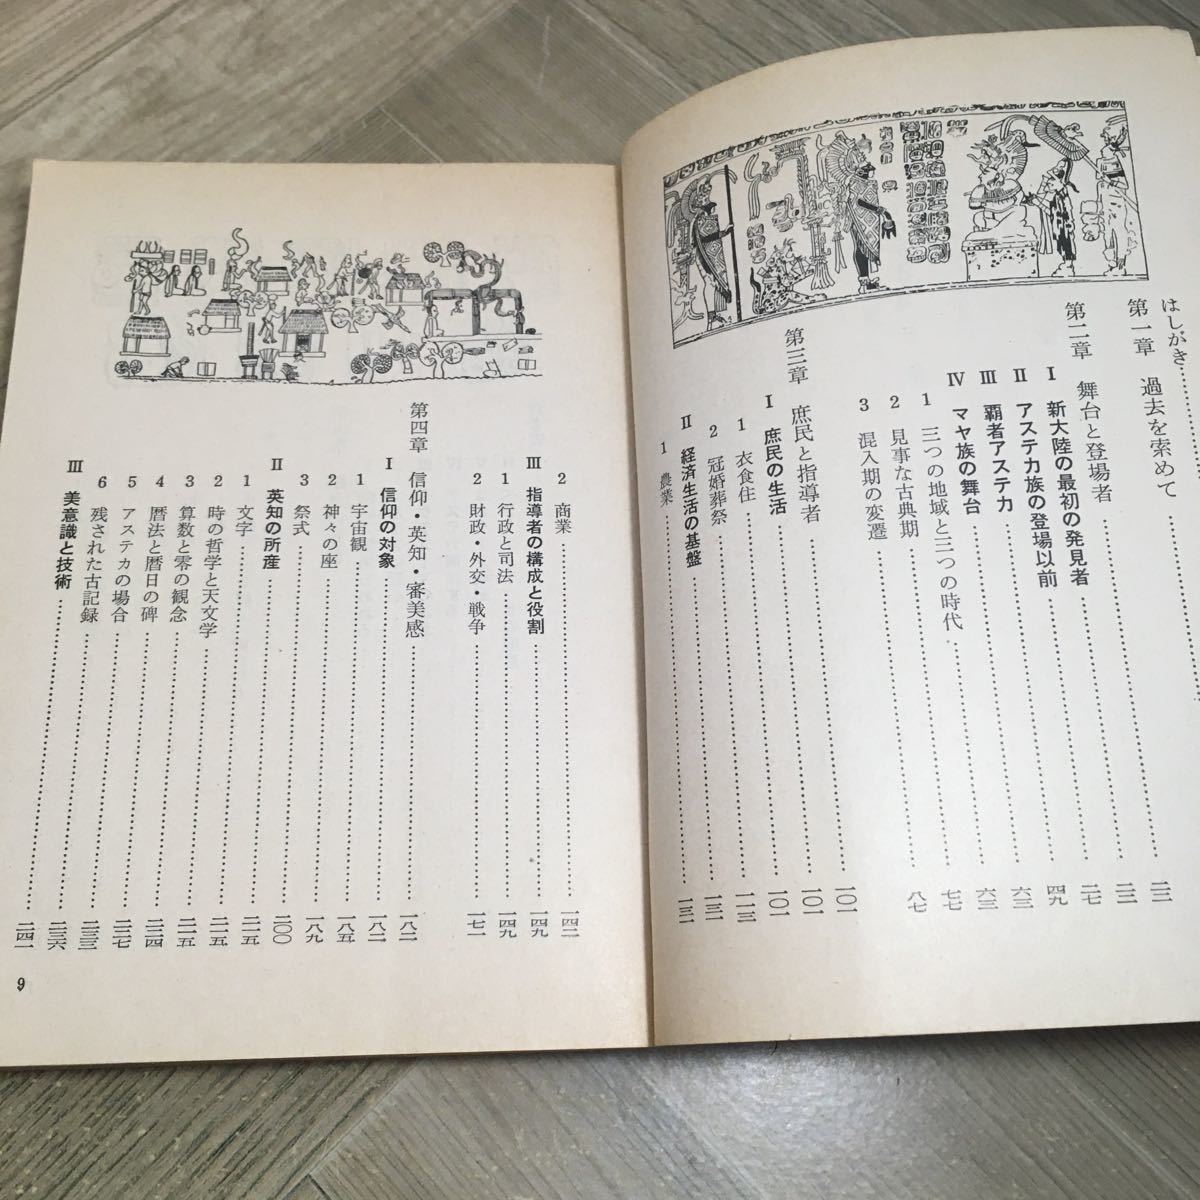 はしがき
第一章 過去を索めて
第二章 舞台と登場者 二三
Ⅰ 新大陸の最初の発見者 二三
Ⅱ アステカ族の登場以前 二七
Ⅲ 覇者アステカ 四九
Ⅳ マヤ族の舞台 六三
1 三つの地域と三つの時代 六三
2 見事な古典期 七七
3 混入期の変遷 八七
第三章 庶民と指導者 一〇一
Ⅰ 庶民の生活 一〇一
1 衣食住 一〇一
2 冠婚葬祭 一一三
Ⅱ 経済生活の基盤 一三一
1 農業 一三一
2 商業 一四二
Ⅲ 指導者の構成と役割 一四九
1 行政と司法 一四九
2 財政・外交・戦争 一七一
第四章 信仰・英知・審美感 一八二
Ⅰ 信仰の対象 一八二
1 宇宙観 一八五
2 神々の座 一八九
3 祭式 二〇〇
Ⅱ 英知の所産 二一五
1 文字 二一五
2 時の哲学と天文学 二一五
3 算数と零の観念 二二四
4 暦法と暦日の碑 二二七
5 アステカの場合 二三三
6 残された古記録 二三六
Ⅲ 美意識と技術 二四一
9